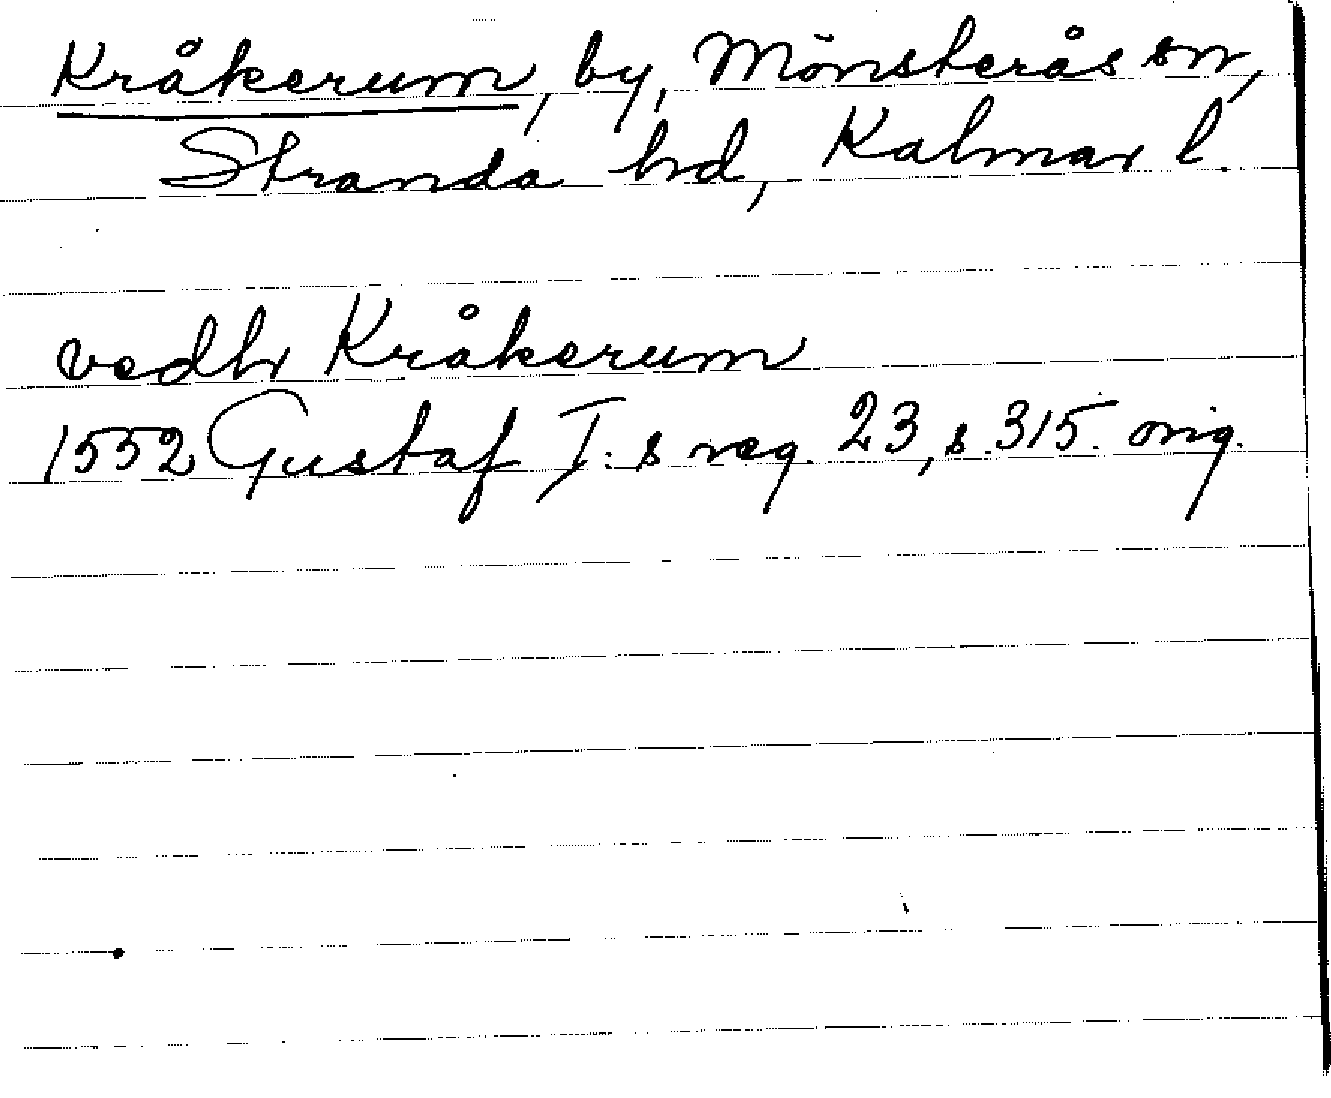 Kråkerum, by, Mönsterås sn,
Stranda hd, Kalmar l.
vedh Kråkerum
1552 Gustaf I:s reg. 23, s. 315. orig.